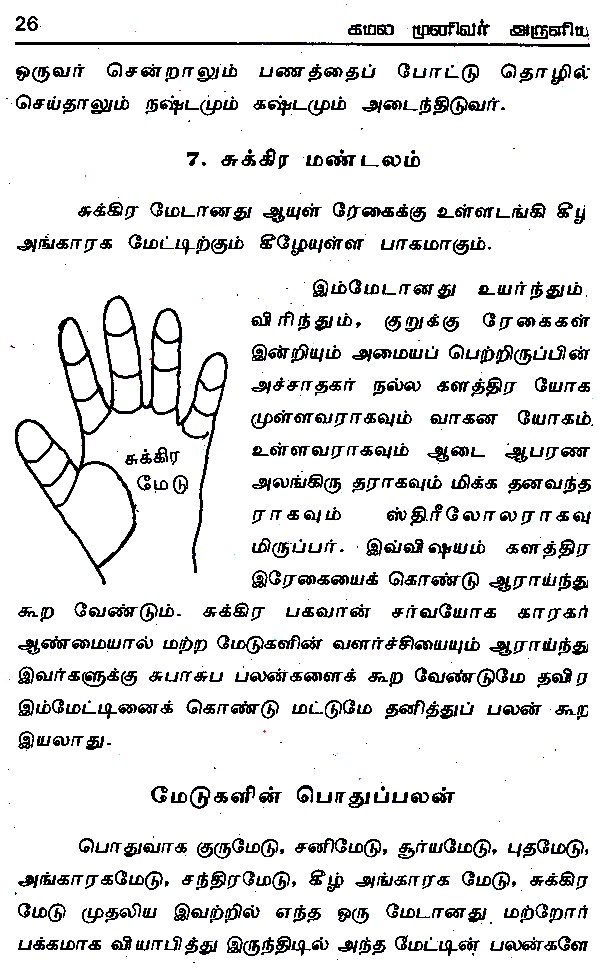 26
கமல முனிவர் அருளிய
ஒருவர் சென்றாலும் பணத்தைப் போட்டு தொழில்
செய்தாலும் நஷ்டமும் கஷ்டமும் அடைந்திடுவர்.
7. சுக்கிர மண்டலம்
சுக்கிர மேடானது ஆயுள் ரேகைக்கு உள்ளடங்கி கீழ்
அங்காரக மேட்டிற்கும் கீழேயுள்ள பாகமாகும்.
இம்மேடானது உயர்ந்தும்
விரிந்தும், குறுக்கு ரேகைகள்
இன்றியும் அமையப் பெற்றிருப்பின்
அச்சாதகர் நல்ல களத்திர யோக
முள்ளவராகவும் வாகன யோகம்
உள்ளவராகவும் ஆடை ஆபரண
அலங்கிரு தராகவும் மிக்க தனவந்த
ராகவும் ஸ்திரீலோலராகவு
மிருப்பர். இவ்விஷயம் களத்திர
இரேகையைக் கொண்டு ஆராய்ந்து
சுக்கிர
மேடு
கூற வேண்டும். சுக்கிர பகவான் சர்வயோக காரகர்
ஆண்மையால் மற்ற மேடுகளின் வளர்ச்சியையும் ஆராய்ந்து
இவர்களுக்கு சுபாசுப பலன்களைக் கூற வேண்டுமே தவிர
இம்மேட்டினைக் கொண்டு மட்டுமே தனித்துப் பலன் கூற
இயலாது.
மேடுகளின் பொதுப்பலன்
பொதுவாக குருமேடு, சனிமேடு, சூர்யமேடு, புதமேடு,
அங்காரகமேடு, சந்திரமேடு, கீழ் அங்காரக மேடு, சுக்கிர
மேடு முதலிய இவற்றில் எந்த ஒரு மேடானது மற்றோர்
பக்கமாக வியாபித்து இருந்திடில் அந்த மேட்டின் பலன்களே